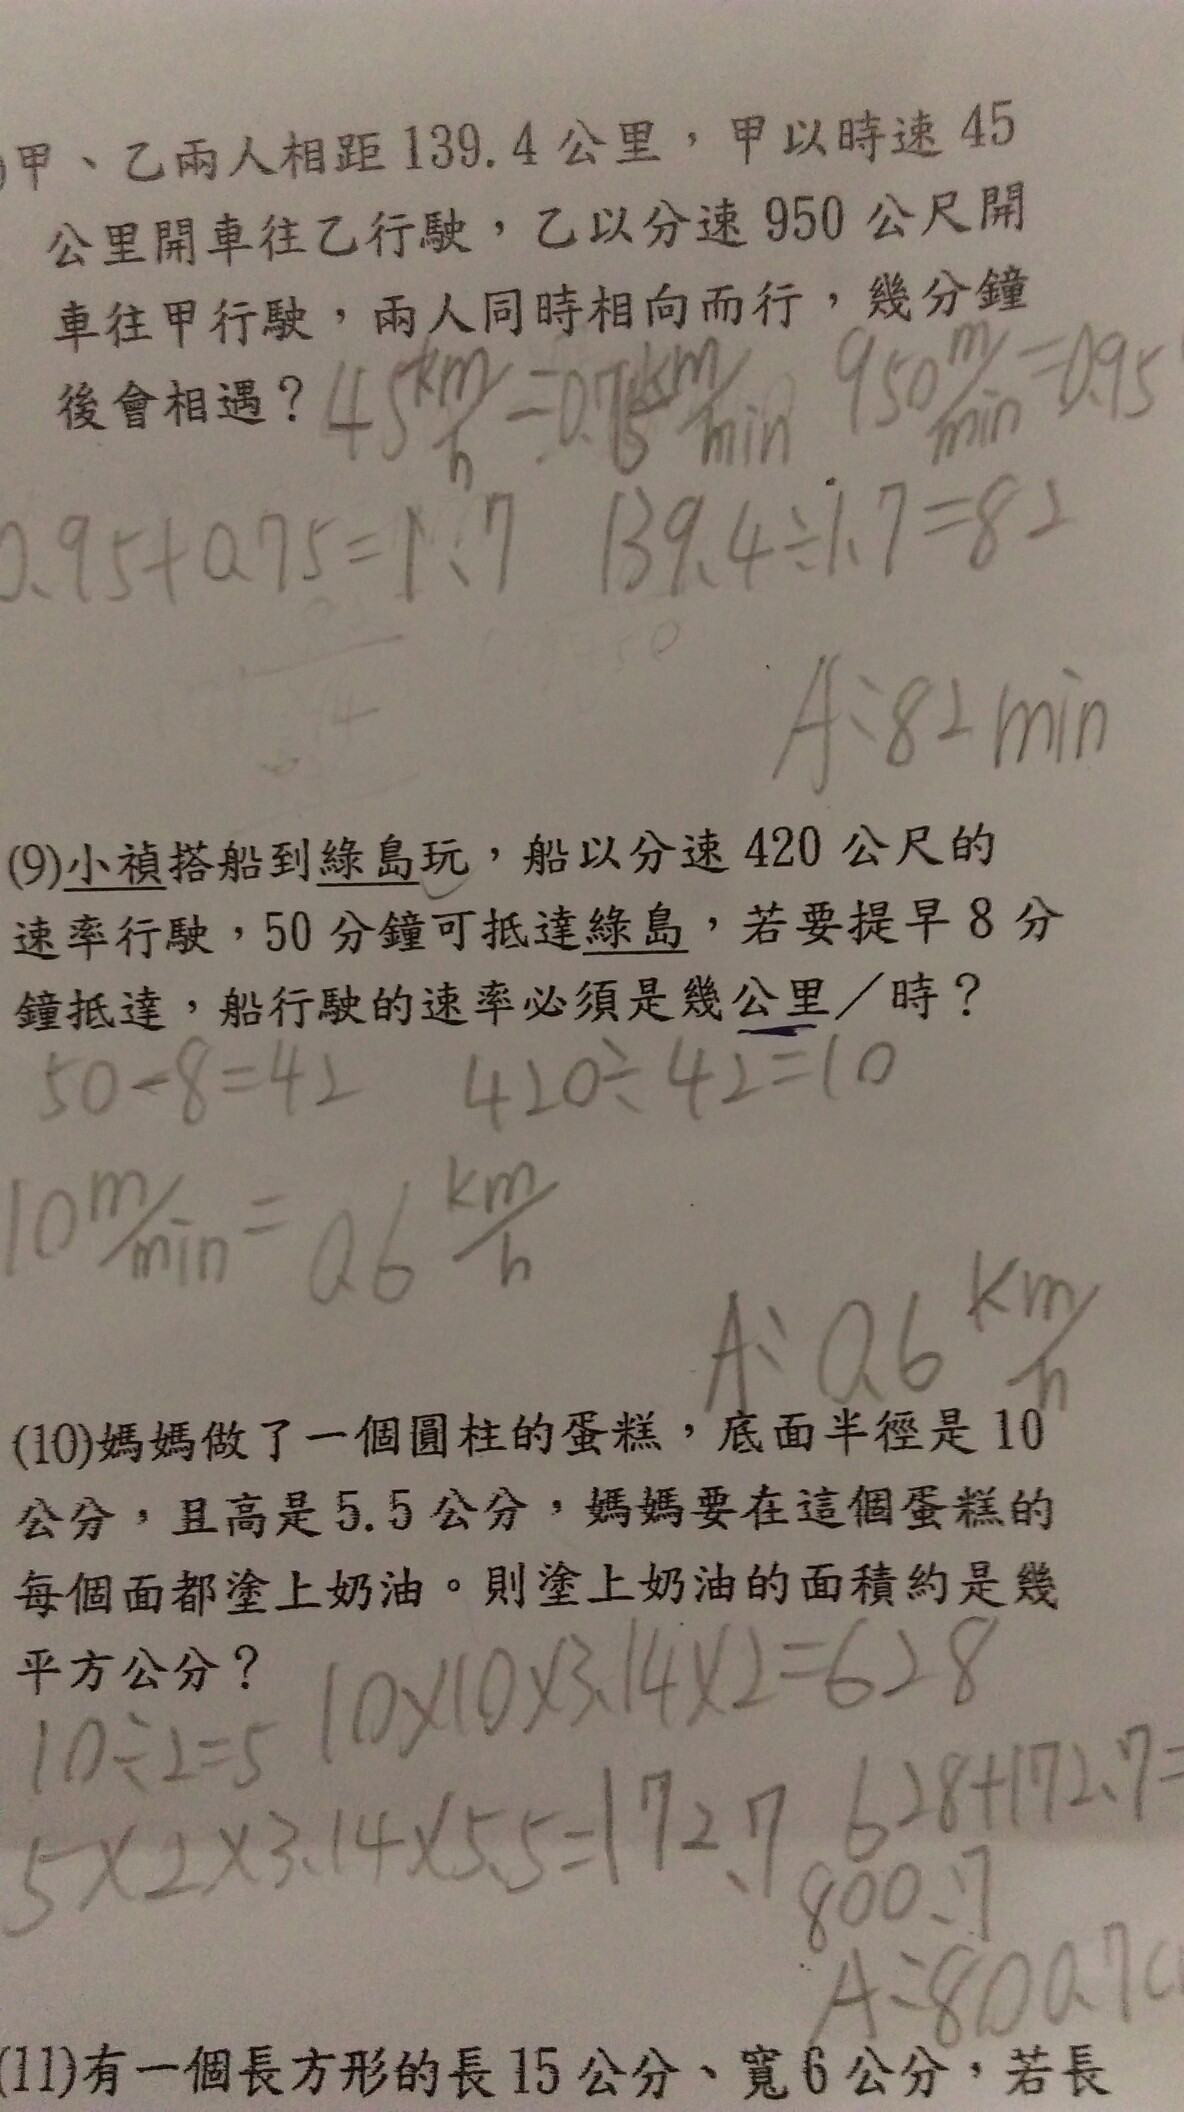 )甲、乙兩人相距139.4公里，甲以時速45
公里開車往乙行駛，乙以分速950公尺開
車往甲行駛，兩人同時相向而行，幾分鐘
後會相遇？ 45km/h=0.75km/min 950m/min=0.95
0.95+0.75=1.7 139.4÷1.7=82
A:82min
(9)小禎搭船到綠島玩，船以分速420公尺的
速率行駛，50分鐘可抵達綠島，若要提早8分
鐘抵達，船行駛的速率必須是幾公里／時？
50-8=42 420÷42=10
10m/min=0.6km/h
A:0.6km/h
(10)媽媽做了一個圓柱的蛋糕，底面半徑是10
公分，且高是5.5公分，媽媽要在這個蛋糕的
每個面都塗上奶油。則塗上奶油的面積約是幾
平方公分？ 10×10×3.14×2=628
10÷2=5
5×2×3.14×5.5=172.7 628+172.7=
800.7
A:800.7c
(11)有一個長方形的長15公分、寬6公分，若長